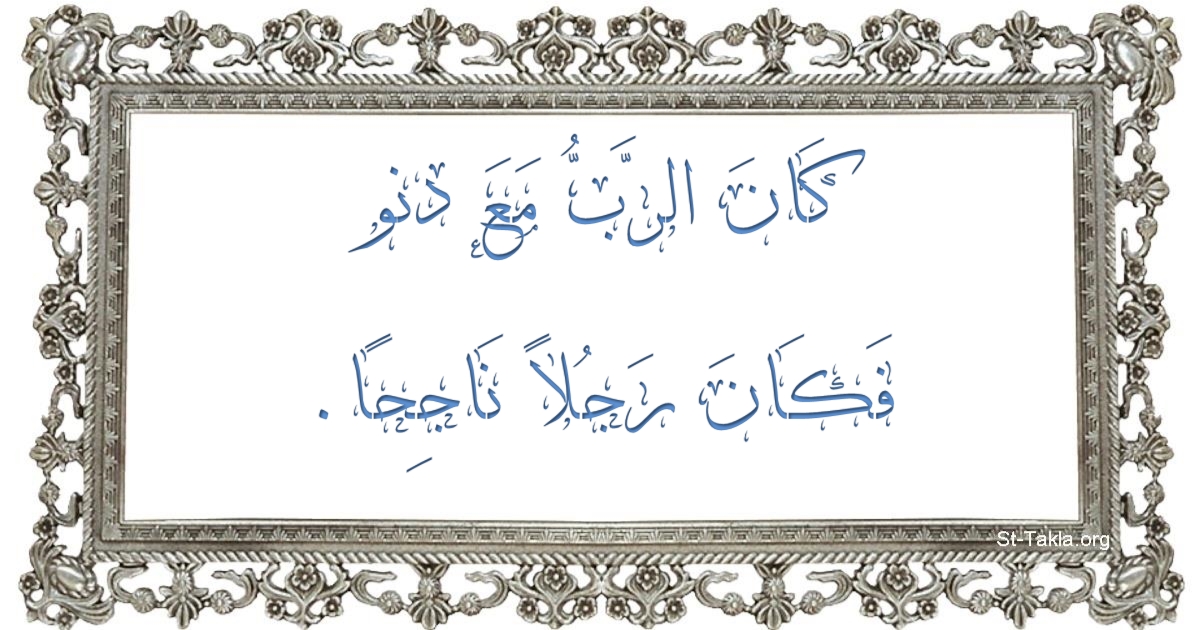 كَانَ الرَّبُّ مَعَ دنو
فَكَانَ رَجُلاً نَاجِحًا .
St-Takla.org